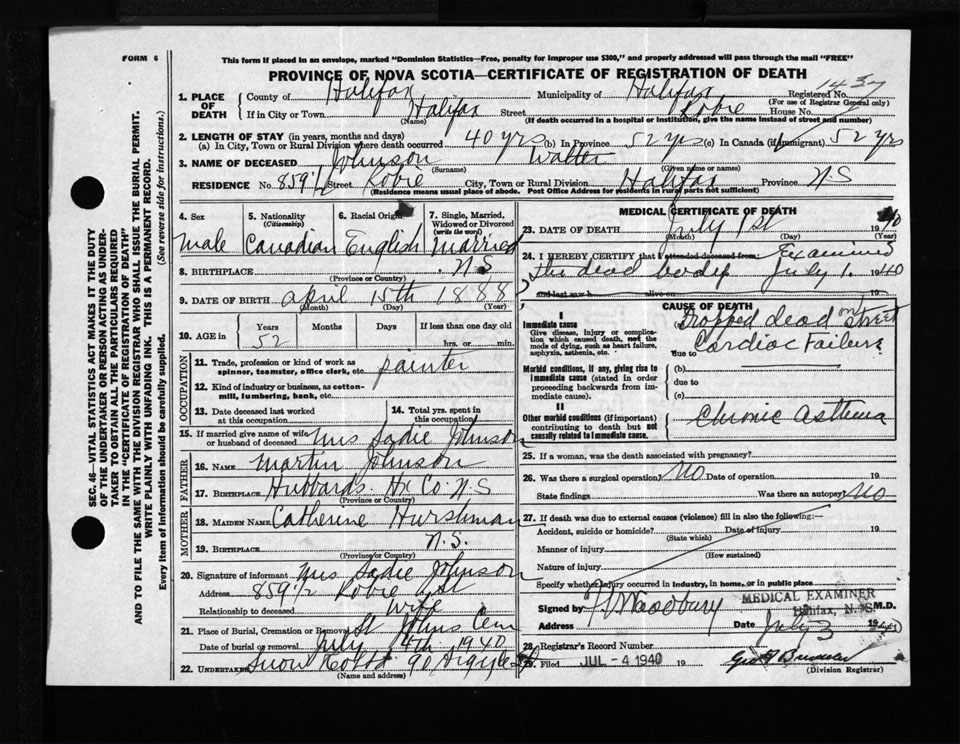 FORM 6
This form if placed in an envelope, marked "Dominion Statistics—Free, penalty for improper use $300," and properly addressed will pass through the mail "FREE"
PROVINCE OF NOVA SCOTIA—CERTIFICATE OF REGISTRATION OF DEATH
SEC. 46—VITAL STATISTICS ACT MAKES IT THE DUTY
OF THE UNDERTAKER OR PERSON ACTING AS UNDER-
TAKER TO OBTAIN ALL THE PARTICULARS REQUIRED
IN THE "CERTIFICATE OF REGISTRATION OF DEATH"
AND TO FILE THE SAME WITH THE DIVISION REGISTRAR WHO SHALL ISSUE THE BURIAL PERMIT.
WRITE PLAINLY WITH UNFADING INK. THIS IS A PERMANENT RECORD.
Every item of information should be carefully supplied. (See reverse side for instructions.)
1. PLACE OF DEATH County of Halifax Municipality of Halifax Registered No. 1437
(For use of Registrar General only)
If in City or Town Halifax Street Robie House No.
(Name) (If death occurred in a hospital or institution, give the name instead of street and number)
2. LENGTH OF STAY (in years, months and days)
(a) In City, Town or Rural Division where death occurred 40 yrs (b) In Province 52 yrs (c) In Canada (if immigrant) 52 yrs
3. NAME OF DECEASED Johnson Walter
(Surname) (Given name or names)
RESIDENCE No. 859½ Street Robie City, Town or Rural Division Halifax Province NS
(Residence means usual place of abode. Post Office Address for residents in rural parts not sufficient)
4. Sex
male
5. Nationality
(Citizenship)
Canadian
6. Racial Origin
English
7. Single, Married,
Widowed or Divorced
(write the word)
Married
8. BIRTHPLACE N.S
(Province or Country)
9. DATE OF BIRTH april 15th 1888
(Month) (Day) (Year)
10. AGE in Years Months Days If less than one day old
52 hrs. or min.
OCCUPATION
11. Trade, profession or kind of work as
spinner, teamster, office clerk, etc. painter
12. Kind of industry or business, as cotton-
mill, lumbering, bank, etc.
13. Date deceased last worked
at this occupation
14. Total yrs. spent in
this occupation
15. If married give name of wife
or husband of deceased Mrs Sadie Johnson
FATHER
16. NAME Martin Johnson
17. BIRTHPLACE Hubbards Hx Co N S
(Province or Country)
MOTHER
18. MAIDEN NAME Catherine Hurshman
19. BIRTHPLACE N.S.
(Province or Country)
20. Signature of informant Mrs Sadie Johnson
Address 859½ Robie St
Relationship to deceased wife
21. Place of Burial, Cremation or Removal St Johns Cem
Date of burial or removal July 4th 1940
22. UNDERTAKER Snow 90 Argyle St
(Name and address)
MEDICAL CERTIFICATE OF DEATH
23. DATE OF DEATH July 1st 1940
(Month) (Day) (Year)
24. I HEREBY CERTIFY that I attended deceased from: Examined
the dead body July 1. 1940
and last saw h alive on 19
CAUSE OF DEATH
I
Immediate cause
Give disease, injury or complica-
tion which caused death, not the
mode of dying, such as heart failure,
asphyxia, asthenia, etc.
Dropped dead on street
due to Cardiac Failure
Morbid conditions, if any, giving rise to
immediate cause (stated in order
proceeding backwards from im-
mediate cause).
(b)
due to
(c)
II
Other morbid conditions (if important)
contributing to death but not
causally related to immediate cause.
Chronic Asthma
25. If a woman, was the death associated with pregnancy?
26. Was there a surgical operation? No Date of operation 194
State findings Was there an autopsy? No
27. If death was due to external causes (violence) fill in also the following:—
Accident, suicide or homicide? Date of injury 19
(State which)
Manner of injury
(How sustained)
Nature of injury
Specify whether injury occurred in industry, in home, or in public place
Signed by Woodbury M.D.
MEDICAL EXAMINER
Halifax, N. S.
Address Date July 3 1940
28. Registrar's Record Number
29. Filed JUL - 4 1940 19
(Division Registrar)